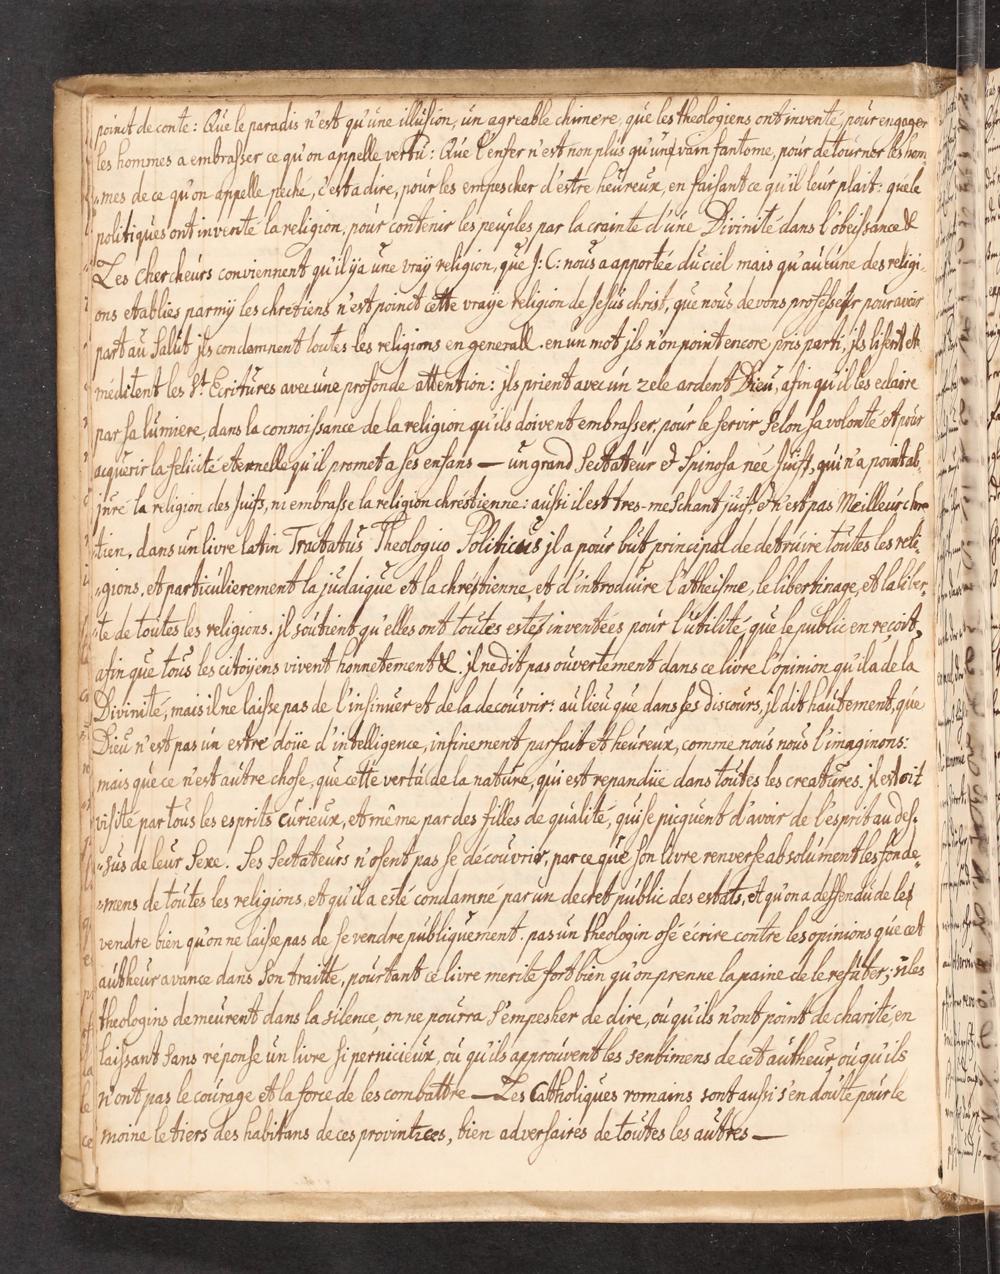 poinct de conte: Que le paradis n'est qu'une illusion, un agreable chimere, que les theologiens ont inventé, pour engager
les hommes a embrasser ce qu'on appelle vertu: Que l'enfer n'est non plus qu'un vain fantome, pour detourner les hom,
,,mes de ce qu'on appelle peché, c'est a dire, pour les empescher d'estre heureux, en faisant ce qu'il leur plait: que le
politiques ont inventé la religion, pour contenir les peuples par la crainte d'une Divinité dans l'obeissance &
Les chercheurs conviennent qu'il ÿa une vraÿ religion, que J: C: nous a apportée du ciel mais qu'aucune des religi,
ons etablies parmy les chretiens n'est poinct cette vraye religion de Jesus christ, que nous devons professer pour avoir
part au Salut jls condamnent toutes les religions en generall. en un mot jls n'on point encore pris parti, jls lisent et
meditent les St. Ecritures avec une profonde attention: jls prient avec un zele ardent Dieu, afin qu'il les eclaire
par sa lumiere, dans la connoissance de la religion qu'ils doivent embrasser, pour le servir selon sa volonté et pour
acquerir la felicité eternelle qu'il promet a ses enfans — un grand Sectateur & Spinosa neé Juiff, qui n'a point ab,
juré la religion des Juifs, ni embrasse la religion chrestienne: aussi il est tres-meschant juif, & n'est pas Meilleur chre
,,tien. dans un livre latin Tractatus Theologico Politicus jl a pour but principal de detruire toutes les reli,
,,gions, et particulierement la judaique et la chrestienne, et d'introduire l'atheisme, le libertinage, et la liber,
,,te de toutes les religions. jl soutient qu'elles ont toutes estés inventées pour l'utilité, que le public en reçoit,
afin que tous les citoÿens vivent honnetement &. jl ne dit pas ouvertement dans ce livre l'opinion qu'il a de la
Divinité, mais il ne laisse pas de l'insinuer et de la decouvrir: au lieu que dans ses discours, jl dit hautement, que
Dieu n'est pas un estre doüe d'intelligence, infinement parfait et heureux, comme nous nous l'imaginons:
mais que ce n'est autre chose, que cette vertu de la nature, qui est repanduë dans toutes les creatures. jl estoit
visité par tous les esprits curieux, et même par des filles de qualité, qui se picquent d'avoir de l'esprit au des,
,,sus de leur Sexe. Ses Sectateurs n'osent pas se découvrir, parce que son livre renverse absolument les fonde,
,,mens de toutes les religions, et qu'il a esté condamné par un decret public des estats, et qu'on a deffendu de les
vendre bien qu'on ne laisse pas de se vendre publiquement. pas un theologin osé écrire contre les opinions que cet
autheur avance dans Son traitte, pourtant ce livre merite fort bien qu'on prenne la paine de le refuter; si les
theologins demeurent dans la silence, on ne pourra s'empesher de dire, ou qu'ils n'ont point de charité, en
laissant sans réponse un livre si pernicieux, ou qu'ils approuvent les sentimens de cet autheur, ou qu'ils
n'ont pas le courage et la force de les combattre — Les Catholiques romains sont aussi s'en doute pour le
moine le tiers des habitans de ces provintzces, bien adversaires de toutes les autres —